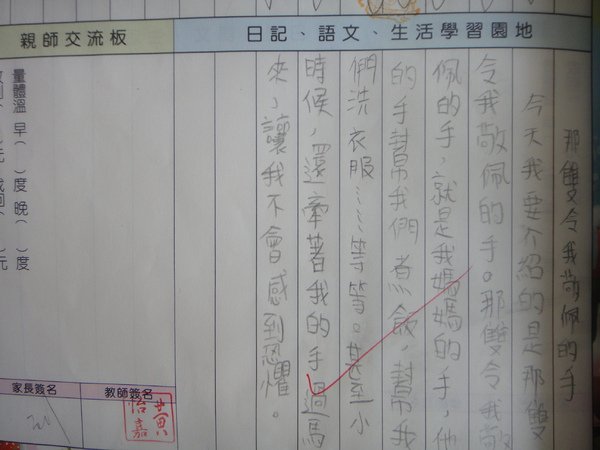 日記、語文、生活學習園地
那雙令我敬佩的手
今天我要介紹的是那雙
令我敬佩的手。那雙令我敬
佩的手，就是我媽媽的手，他
的手幫我們煮飯，幫我
們洗衣服……等等。甚至小
時候，還牽著我的手過馬
來，讓我不會感到恐懼。
親師交流板
量體溫 早( )度 晚( )度
教師簽名
黃怡嘉
家長簽名